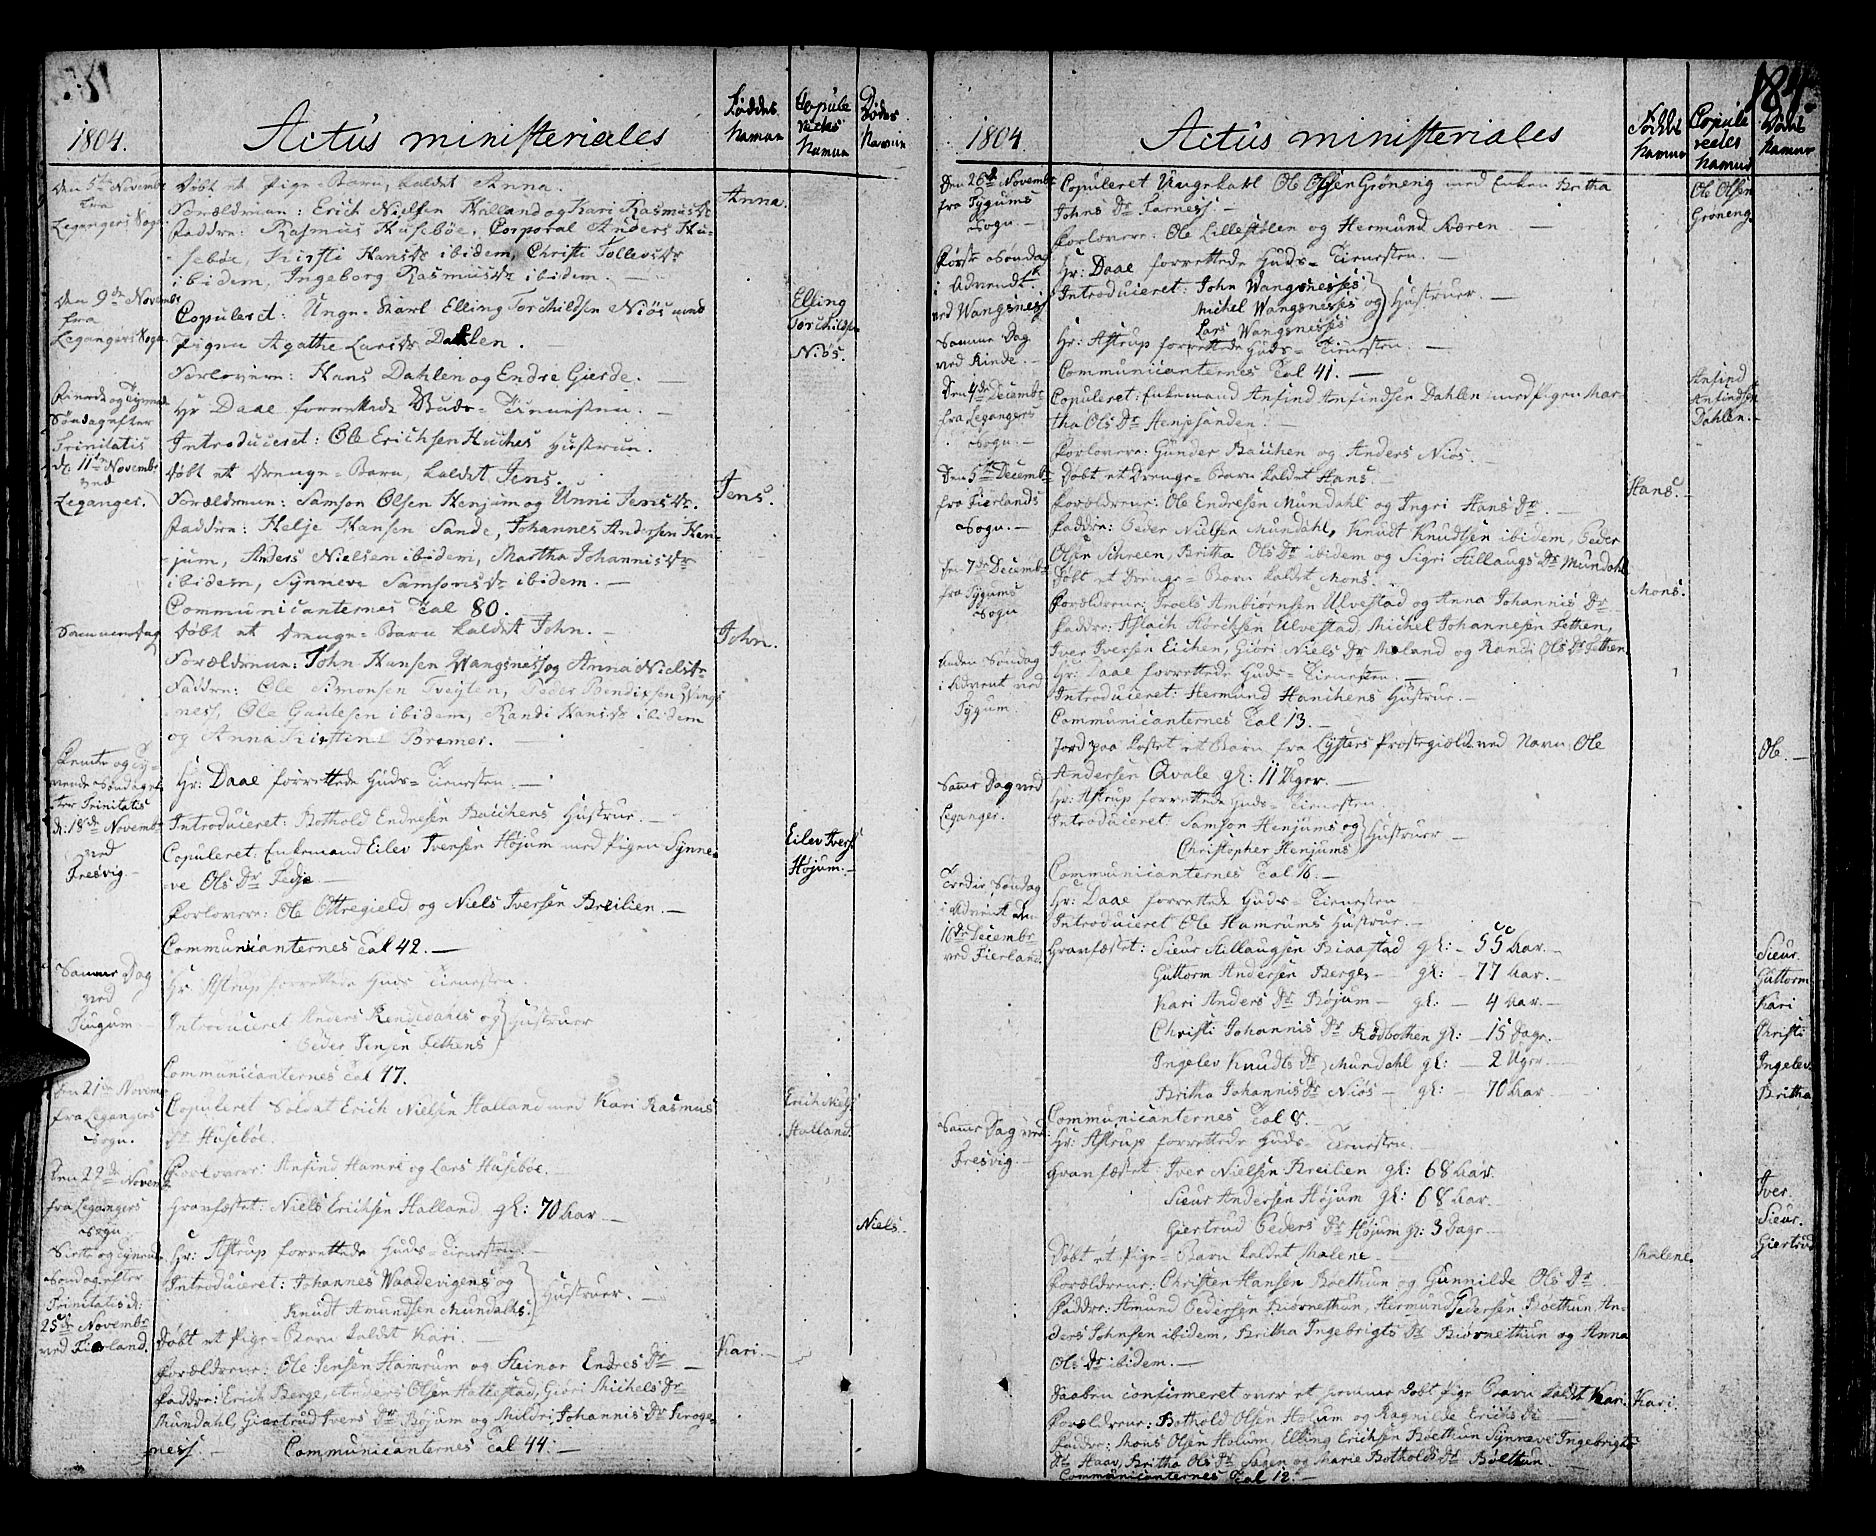 1804.
Actus ministeriales
Føddes Namne
Copule redes Namne
Dødes Namne
Den 5te Novembr fra Leganger Sogn.
Døbt et Pige-Barn, kaldet Anna.
Anna.
Forældrene: Erich Nielsen Halland og Kari Rasmusdr
Faddre: Rasmus Husebøe, Corporal Anders Hu-
sebøe, Kirsti Hansdr ibidem, Christi Tollevsdr
ibidem, Ingeborg Rasmusdr ibidem. —
Den 9de Novembr fra Legangers Sogn.
Copuleret: Unge-Karl Elling Torchildsen Niøs med
Elling Torchildsen Niøs.
Pigen Agathe Larsdr Dahlen. —
Forlovere: Hans Dahlen og Endre Gierde. —
Hr Daae forrettede Guds-Tienesten. —
Søndag efter Trinitatis d: 11te Novembr ved Leganger.
Introduceret: Ole Erichsen Huches Hustrue. —
Døbt et Drenge-Barn, kaldet Jens.
Jens.
Forældrene: Samson Olsen Henjum og Unni Jensdr.
Faddre: Helje Hansen Sande, Johannes Andersen Hen-
jum, Anders Nielsen ibidem, Martha Johannisdr
ibidem, Synneve Samsonsdr ibidem. —
Communicanternes Tal 80. —
Samme Dag
Døbt et Drenge-Barn kaldet John. —
John.
Forældrene: John Hansen Wangsness og Anna Nielsdr
Faddre: Ole Simonsen Tveyten, Peder Bendixsen Wangs
ness, Ole Gautesen ibidem, Randi Hansdr ibidem
og Anna Kirstine Bremer. —
Søndag efter Trinitatis d: 18de Novembr ved Fresvig —
Hr: Daae forrettede Guds-Tienesten. —
Introduceret: Bothold Endresen Baüchens Hustrue. —
Copuleret: Enkemand Eilev Iversen Højum med Pigen Synne-
Eilev Ivers: Højum. —
ve Ols Dr Fedje —
Forlovere: Ole Ottregield og Niels Iversen Breilien. —
Communicanternes Tal 42. —
Samme Dag ved Tiugum —
Hr: Astrup forrettede Guds Tienesten.
Introduceret Anders Rendedahls og
Peder Jensen Fethens } Hustruer
Communicanternes Tal 47.
Den 21de Novembr fra Legangers Sogn.
Copuleret Soldat Erich Nielsen Halland med Kari Rasmus
Erich Niels: Halland.
Dr Husebøe.
Forlovere: Ansind Hamre og Lars Husebøe. —
Den 22de Novembr fra Legangers Sogn
Grandfæstet: Niels Erichsen Halland gl: 70 Aar —
Niels —
Søndag efter Trinitatis d: 25de Novembr ved Fierland.
Hr: Astrup forrettede Guds-Tienesten. —
Introduceret: Johannes Waadevigens og
Knudt Amundsen Mundahls } Hustruer. —
Døbt et Pige-Barn kaldet Kari. —
Kari. —
Forældrene: Ole Jensen Hamrum og Steinor Endres Dr —
Faddre: Erich Berge, Anders Olsen Hattestad, Giøri Michels Dr
Mundahl, Giertrud Ivers Dr Bøjum og Mildri Johannis Dr Kroge-
ness. — Communicanternes Tal 44: —
184.
1804
Actus ministeriales
Føddes Namne
Copule redes Namne
Dødes Namne
Den 26de Novembr fra Tygums Sogn. —
Copuleret Ungekarl Ole Olsen Grøneng med Enken Britha
Ole Olsen Grøneng.
Johns Dr Farness. —
Forlovere: Ole Lillestølen og Hermund Næren. —
Første Søndag i Advendt ved Wangsness
Hr: Daae forrettede Guds-Tienesten. —
Introduceret: John Wangsnesses
Michel Wangsnesses og
Lars Wangsnesses } Hustruer. —
Samme Dag ved Rinde.
Hr: Astrup forrettede Guds-Tienesten. —
Communicanternes Tal 41. —
Den 4de Decembr fra Legangers Sogn. —
Copuleret: Enkemand Ansind Ansindsen Dahlen med Pigen Mar-
Ansind Ansindsen Dahlen. —
tha Ols Dr Henjesanden. —
Forlovere: Gunder Baüchen og Anders Niøs —
Den 5te Decembr fra Fierlands Sogn. —
Døbt et Drenge-Barn kaldet Hans. —
Hans. —
Forældrene: Ole Endresen Mundahl og Ingri Hans Dr —
Faddre: Peder Nielsen Mundahl, Knudt Knudtsen ibidem, Peder
Olsen Schreen, Britha Ols Dr ibidem og Sigri Sillaugs Dr Mundahl
Den 7de Decembr fra Tygums Sogn
Døbt et Drenge-Barn kaldet Mons. —
Mons.
Forældrene: Troels Ambiørnsen Ulvestad og Anna Johannis Dr
Faddre: Aslach Hørichsen Ulvestad, Michel Johannesen Fethen,
Iver Iversen Eichen, Giøri Niels Dr Moland og Randi Ols Dr Fethen
Anden Søndag i Advent ved Tygum
Hr: Daae forrettede Guds-Tienesten. —
Introduceret: Hermund Hanchens Hustrue. —
Communicanternes Tal 13. —
Jord paa kastet et Barn fra Lysters Præstegield ved Navn Ole
Ole. —
Andersen Qvale gl: 11 Uger. —
Samme Dag ved Leganger.
Hr: Astrup forrettede Guds-Tienesten.
Introduceret: Samson Henjums og
Christopher Henjums } Hustruer —
Communicanternes Tal 16. —
Tredie Søndag i Advent den 16de Decembr ved Fierland.
Hr: Daae forrettede Guds-Tienesten. —
Introduceret Ole Hamrums Hustrue. —
Granfæstet: Sieur Sillaugsen Biaastad gl: — 55 Aar. —
Sieur.
Guttorm Andersen Berge — gl: — 77 Aar. —
Guttorm
Kari Anders Dr Bøjum — gl: — 4 Aar. —
Kari
Christi Johannis Dr Rødbothen gl: — 15 Dage. —
Christi
Ingelev Knudts Dr Mundahl gl: — 2 Uger. —
Ingelev
Britha Johannis Dr Niøs — gl: — 70 Aar —
Britha
Communicanternes Tal 8. —
Samme Dag ved Fresvig —
Hr: Astrup forrettede Guds-Tienesten. —
Granfæstet: Iver Nielsen Breilien gl: 68 Aar.
Iver.
Sieur Andersen Højum gl: 68 Aar.
Sieur.
Giertrud Peders Dr Højum gl: 3 Dage —
Giertrud
Døbt et Pige-Barn kaldet Malene —
Malene.
Forældrene: Christen Hansen Boethun og Gunnilde Ols Dr —
Faddre: Amund Pedersen Biørnethun, Hermund Pedersen Bøethun, An-
ders Johnsen ibidem, Britha Ingebrigts Dr Biørnethun og Anna
Ols Dr ibidem. —
Daaben confirmeret over et hjemme døbt Pige Barn kaldet Kari.
Kari.
Forældrene: Bothold Olsen Holum og Ragnilde Erichs Dr —
Faddre: Mons Olsen Holum, Elling Erichsen Boethun Synneve Ingebrigts
Dr Haav, Britha Ols Dr Sagen og Marie Botholds Dr Boethun
Communicanternes Tal 12. —